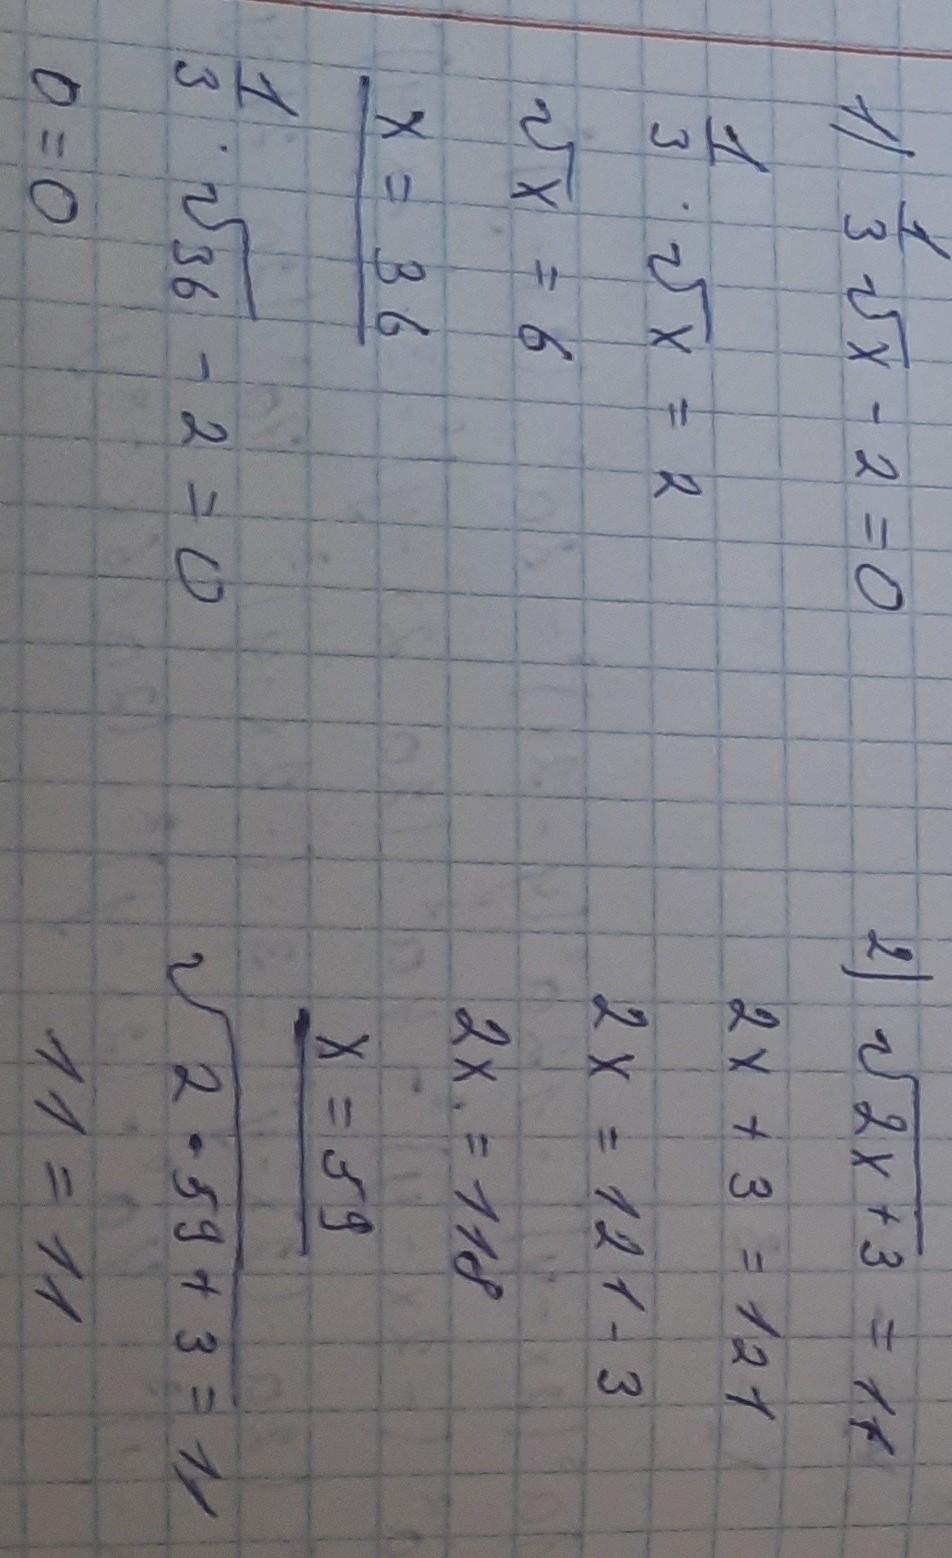 1) 1/3 √x - 2 = 0
1/3 · √x = 2
√x = 6
x = 36
1/3 · √36 - 2 = 0
0 = 0
2) √2x + 3 = 11
2x + 3 = 121
2x = 121 - 3
2x = 118
x = 59
√2 · 59 + 3 = 11
11 = 11